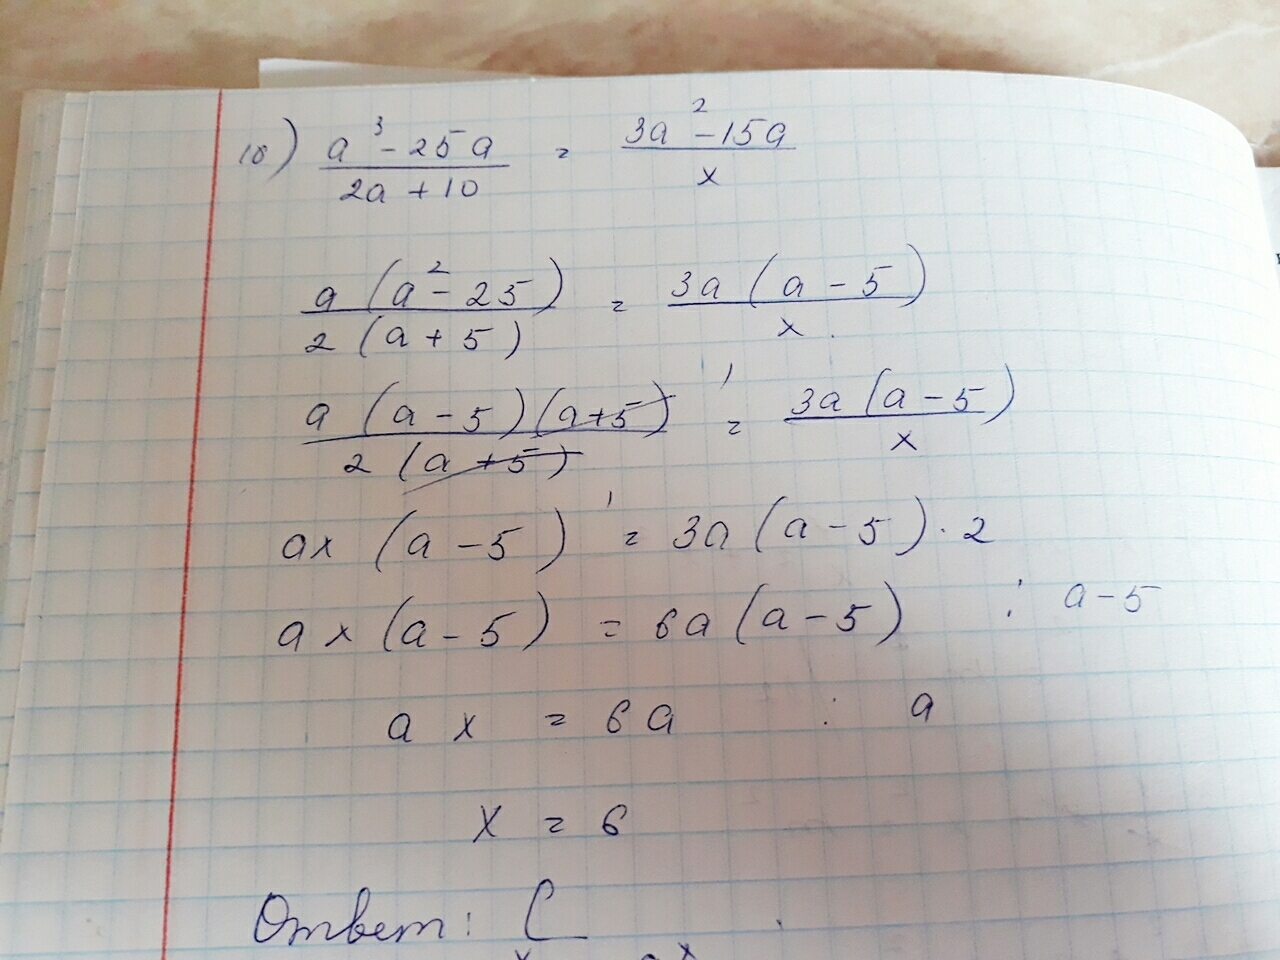 10) (a³ - 25a)/(2a + 10) = (3a² - 15a)/x
(a(a² - 25))/(2(a + 5)) = (3a(a - 5))/x
(a(a - 5)(a + 5))/(2(a + 5)) = (3a(a - 5))/x
ax(a - 5) = 3a(a - 5) · 2
ax(a - 5) = 6a(a - 5) : a - 5
ax = 6a : a
x = 6
Ответ: C